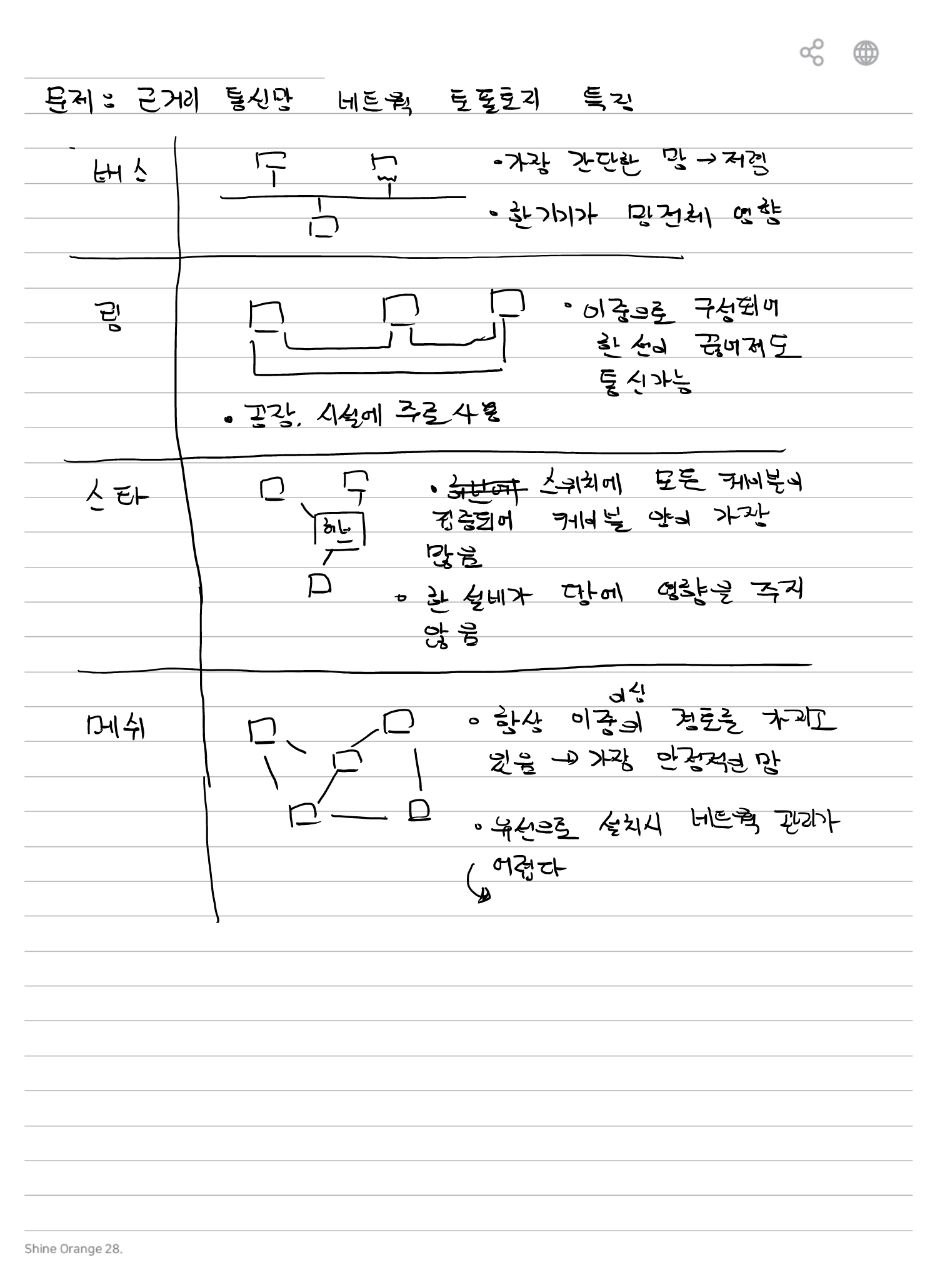 문제: 근거리 통신망 네트웍 토폴로지 특징
버스
·가장 간단한 망 → 저렴
·한기기가 망전체 영향
링
·이중으로 구성되어
한 선이 끊어져도
통신가능
·공장, 시설에 주로 사용
스타
허브
· 스위치에 모든 케이블이
집중되어 케이블 양이 가장
많음
·한 설비가 망에 영향을 주지
않음
메쉬
이상
·항상 이중의 경로를 가지고
있음 → 가장 안정적인 망
·유선으로 설치시 네트웍 관리가
어렵다
Shine Orange 28.